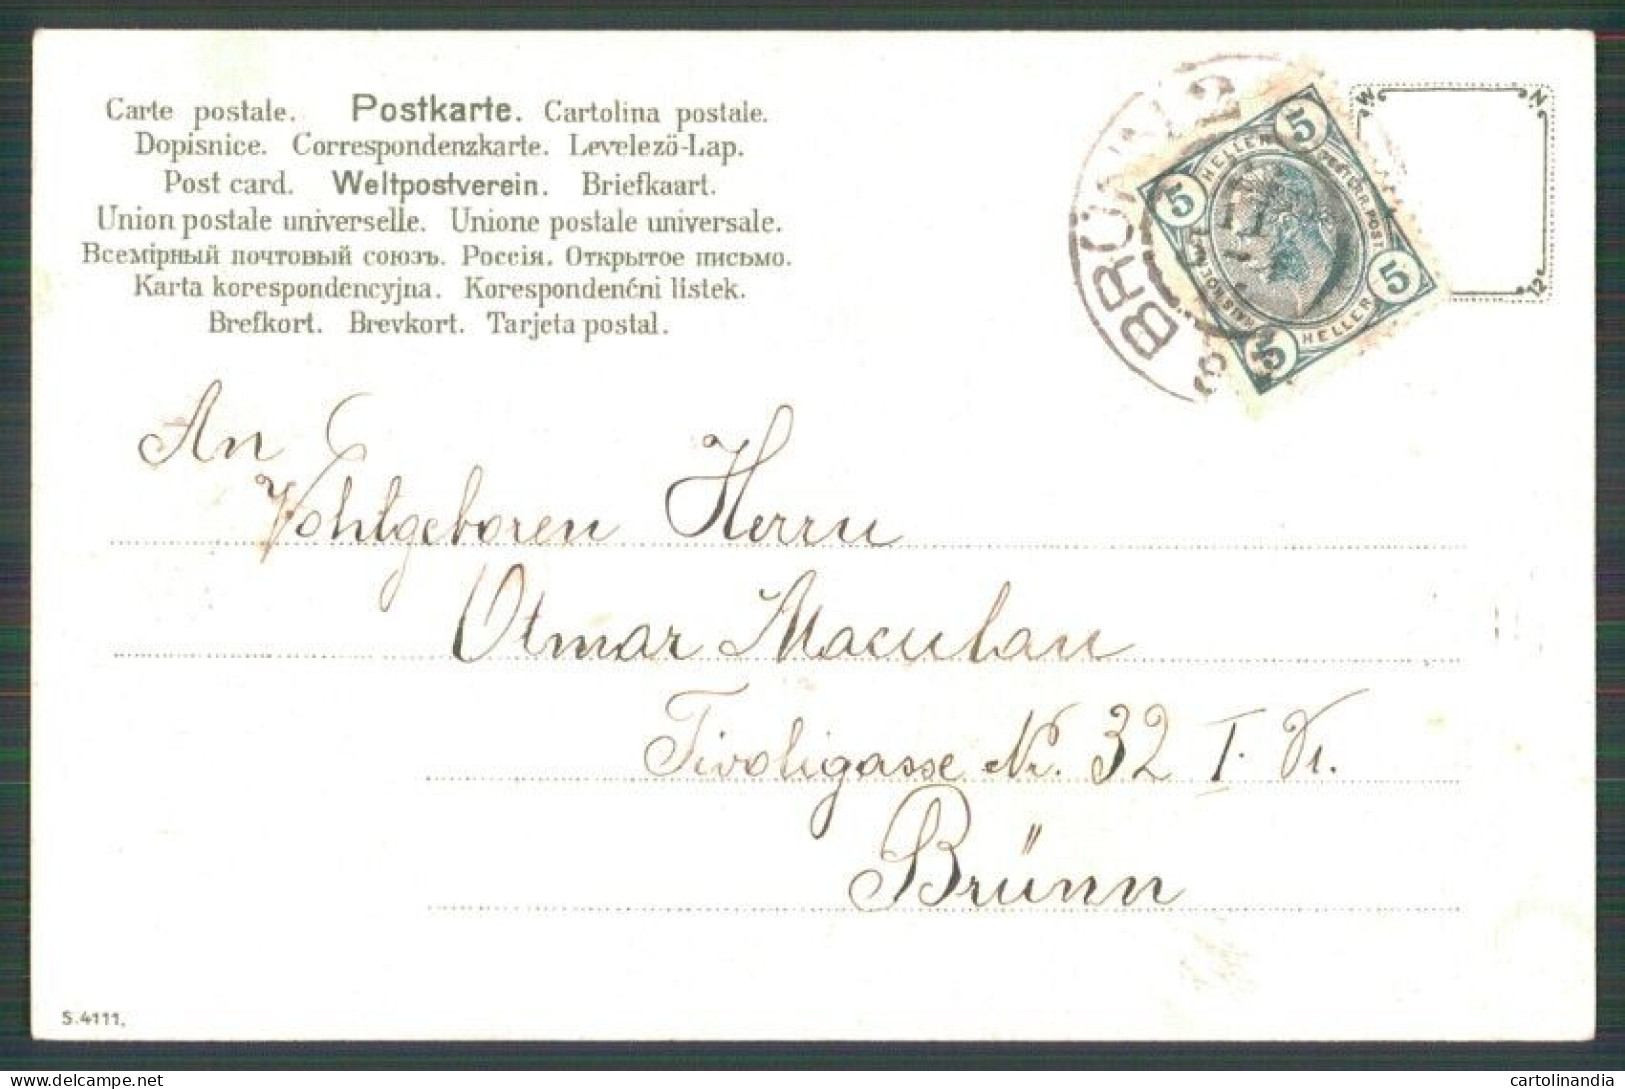 Carte postale. Postkarte. Cartolina postale.
Dopisnice. Correspondenzkarte. Levelező-Lap.
Post card. Weltpostverein. Briefkaart.
Union postale universelle. Unione postale universale.
Всемірный почтовый союзъ. Россія. Открытое письмо.
Karta korespondencyjna. Korespondenčni listek.
Brefkort. Brevkort. Tarjeta postal.
W N
12
5 HELLER 5
5 HELLER 5
An
Wohlgeboren Herrn
Otmar Maculan
Tivoligasse Nr. 32 I. St.
Brünn
S.4111.
www.delcampe.net
cartolinandia